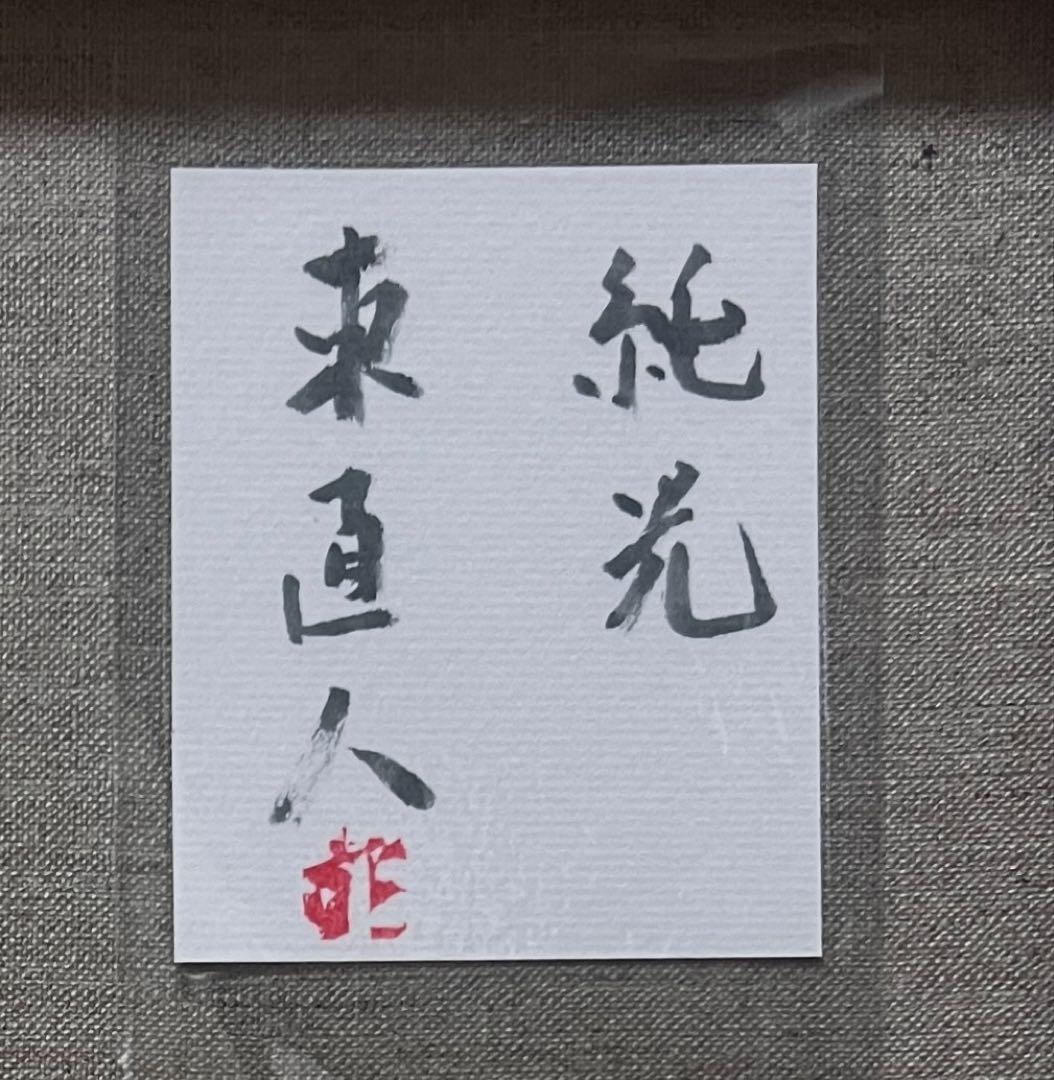 純光
東直人